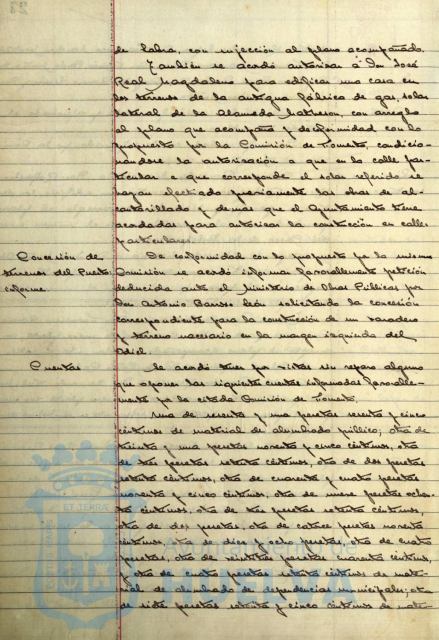 de Labra, con sujección al plano acompañado.
También se acordó autorizar á Don José
Real Magdaleno para edificar una casa en
los terrenos de la antigua fábrica de gas, solar
lateral de la Alameda Matheson, con arreglo
al plano que acompaña y de conformidad con lo
propuesto por la Comisión de Fomento, condicio-
nándose la autorización a que en la calle par-
ticular a que corresponde el solar referido se
hayan efectuado previamente las obras de al-
cantarillado y demás que el Ayuntamiento tiene
acordadas para autorizar la construcción en calles
particulares.
Concesión de
terrenos del Puerto.
informe.
De conformidad con lo propuesto por la misma
Comisión se acordó informar favorablemente petición
deducida ante el Ministerio de Obras Públicas por
Don Antonio Barroso León solicitando la concesión
correspondiente para la construcción de un varadero
y terreno necesario en la margen izquierda del
Odiel.
Cuentas
Se acordó tener por vistas sin reparo alguno
que oponer las siguientes cuentas informadas favorable-
mente por la citada Comisión de Fomento.
Una de sesenta y una pesetas sesenta y cinco
céntimos de material de alumbrado público; otra de
treinta y una pesetas noventa y cinco céntimos, otra
de tres pesetas setenta céntimos, otra de dos pesetas
setenta céntimos, otra de cuarenta y cuatro pesetas
noventa y cinco céntimos, otra de nueve pesetas ochen-
ta céntimos, otra de tres pesetas setenta céntimos,
otra de dos pesetas, otra de catorce pesetas noventa
céntimos, otra de diez y ocho pesetas, otra de cuatro
pesetas, otra de veintitres pesetas cuarenta céntimos,
y otra de cuatro pesetas setenta céntimos de mate-
rial de alumbrado de dependencias municipales; otra
de siete pesetas setenta y cinco céntimos de mate-